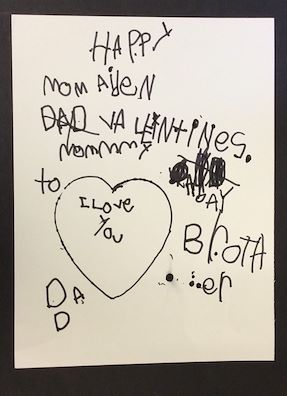 HAPPY
mom AiDEN
DAD VALINTINES.
mommmy
DAY
to
I Love
You
BrOTH
er
DA
D